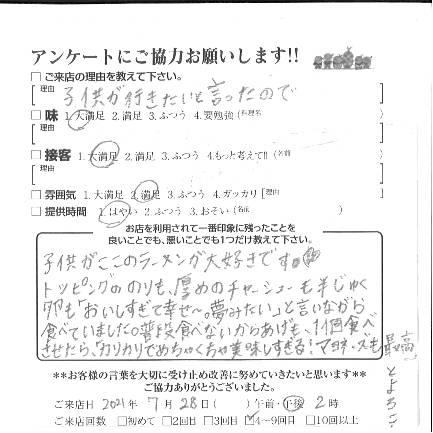 アンケートにご協力お願いします!!
□ご来店の理由を教えて下さい。
[理由 子供が行きたいと言ったので ]
□味 1.大満足 2.満足 3.ふつう 4.要勉強 (料理名 )
[理由 ]
□接客 1.大満足 2.満足 3.ふつう 4.もっと考えて!! (名前 )
[理由 ]
□雰囲気 1.大満足 2.満足 3.ふつう 4.ガッカリ [理由 ]
□提供時間 1.はやい 2.ふつう 3.おそい (名前 )
お店を利用されて一番印象に残ったことを
良いことでも、悪いことでも1つだけ教えて下さい。
子供がここのラーメンが大好きです。
トッピングののりも、厚めのチャーシューも半じゅく
卵も「おいしすぎて幸せ〜。夢みたい」と言いながら
食べていました。普段食べないからあげも、1個食べ
させたら、「カリカリでめちゃくちゃ美味しすぎる!マヨネーズも最高
**お客様の言葉を大切に受け止め改善に努めていきたいと思います**
ご協力ありがとうございました。
ご来店日 2021年 7月 28日( ) 午前・午後 2時
ご来店回数 □初めて □2回目 □3回目 ☑4〜9回目 □10回以上